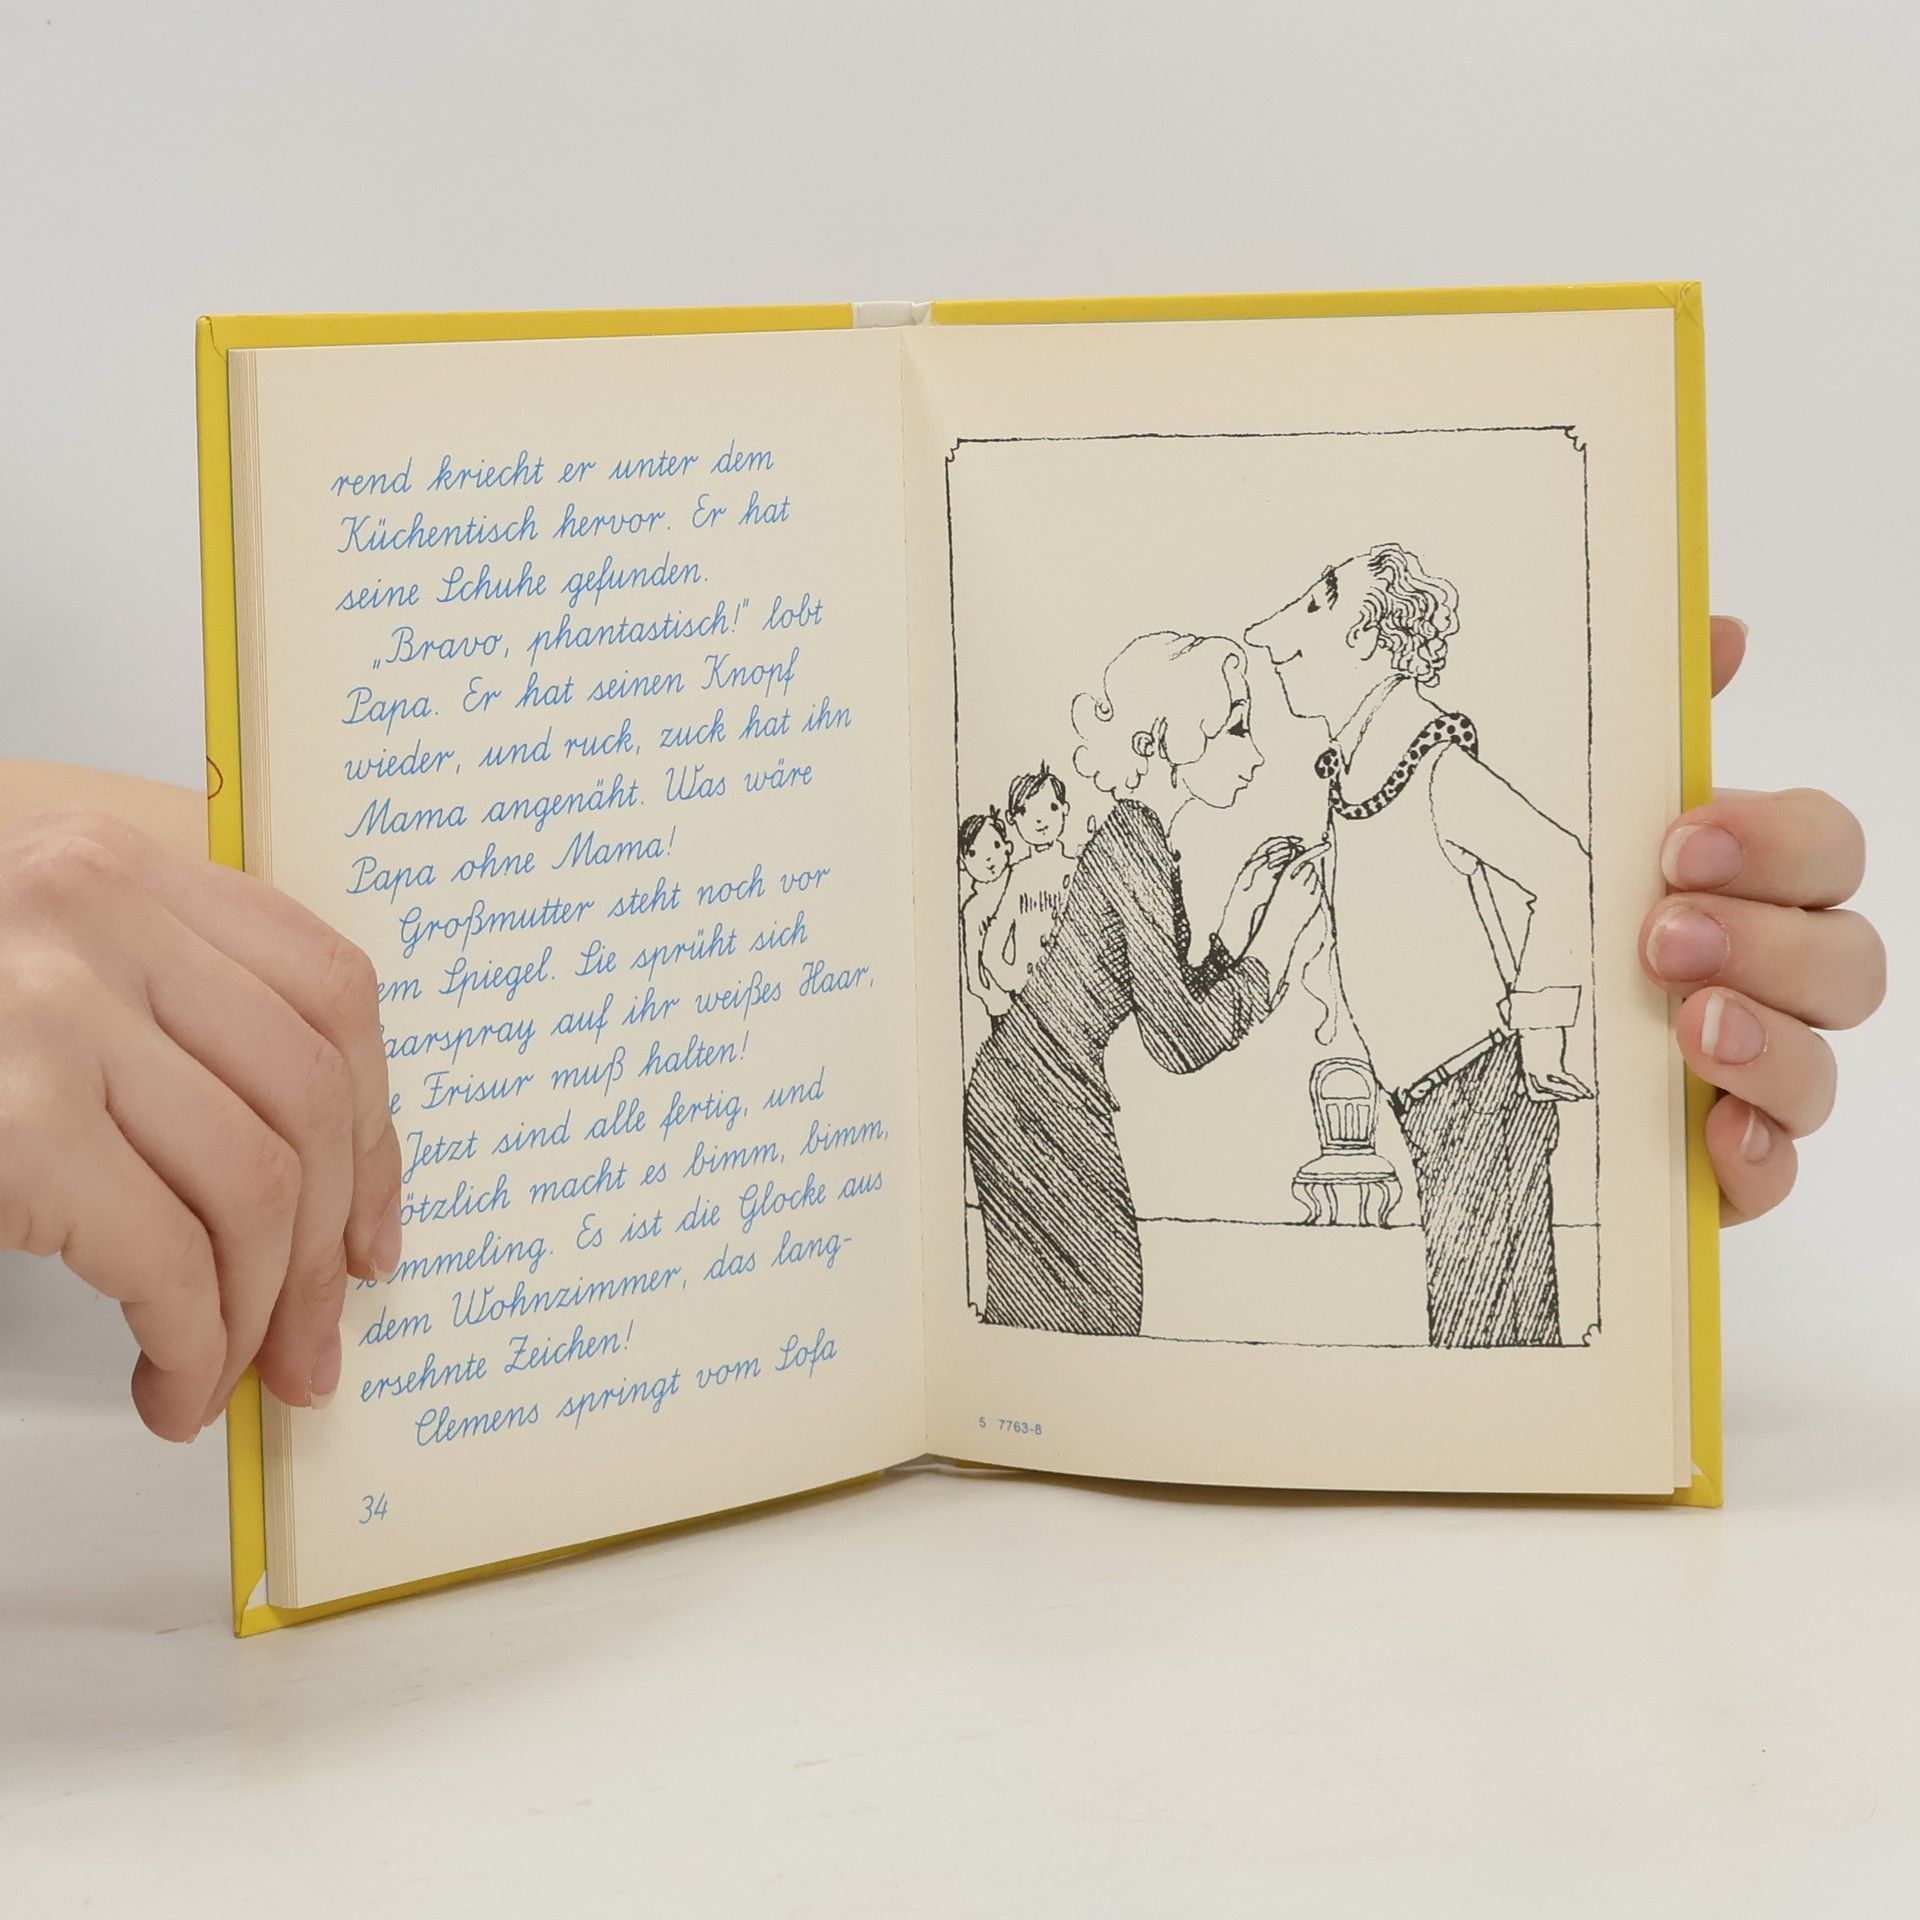 rend kriecht er unter dem
Küchentisch hervor. Er hat
seine Schuhe gefunden.
„Bravo, phantastisch!" lobt
Papa. Er hat seinen Knopf
wieder, und ruck, zuck hat ihn
Mama angenäht. Was wäre
Papa ohne Mama!
Großmutter steht noch vor
em Spiegel. Sie sprüht sich
aarspray auf ihr weißes Haar,
e Frisur muß halten!
Jetzt sind alle fertig, und
ötzlich macht es bimm, bimm,
mmeling. Es ist die Glocke aus
dem Wohnzimmer, das lang-
ersehnte Zeichen!
Clemens springt vom Sofa
34
5 7763-8